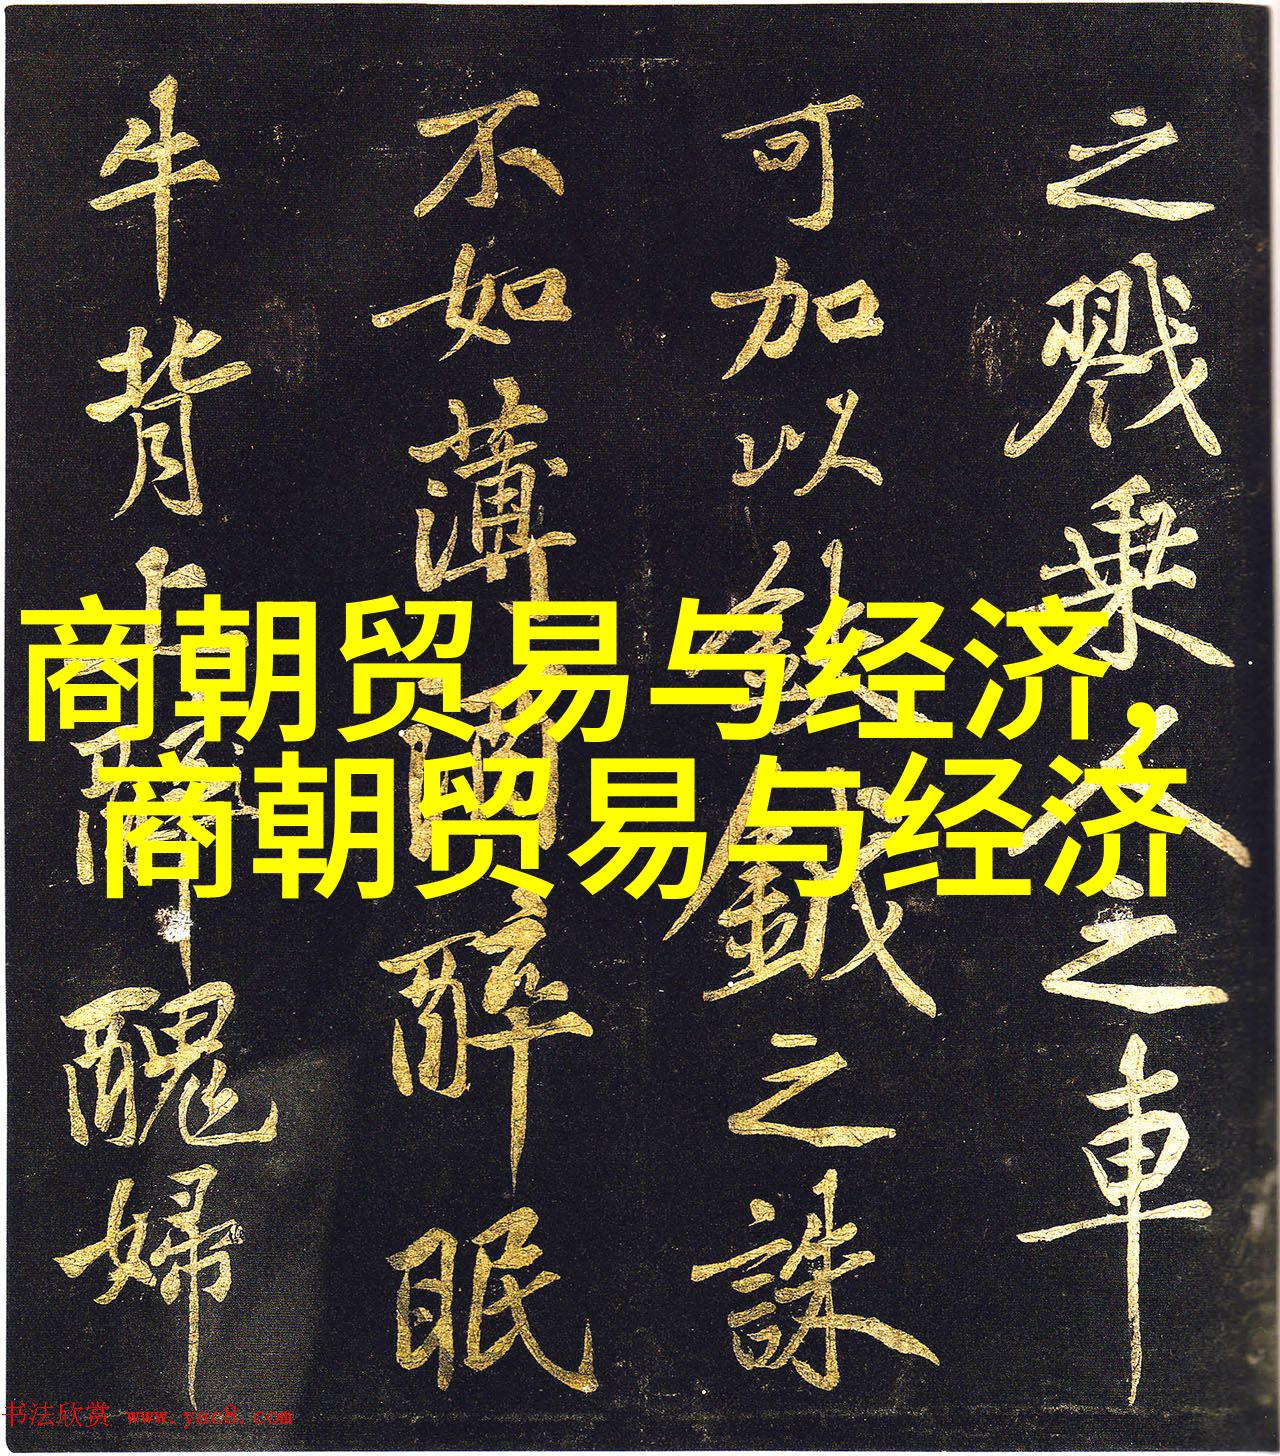 之戮乘人之車
可加以鈇鉞之誅
不如薄酒醉眠
牛背上醜婦
商朝贸易与经济,
商朝贸易与经济
书法欣赏 www.yac8.com